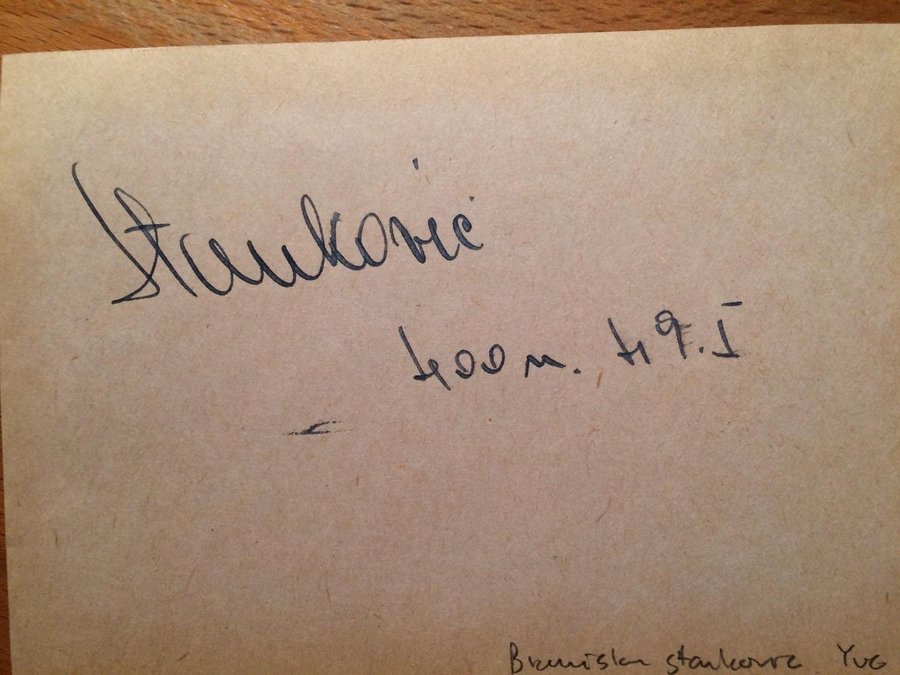 Stanković
400 m. 49.1
Branislav Stankovic YUG